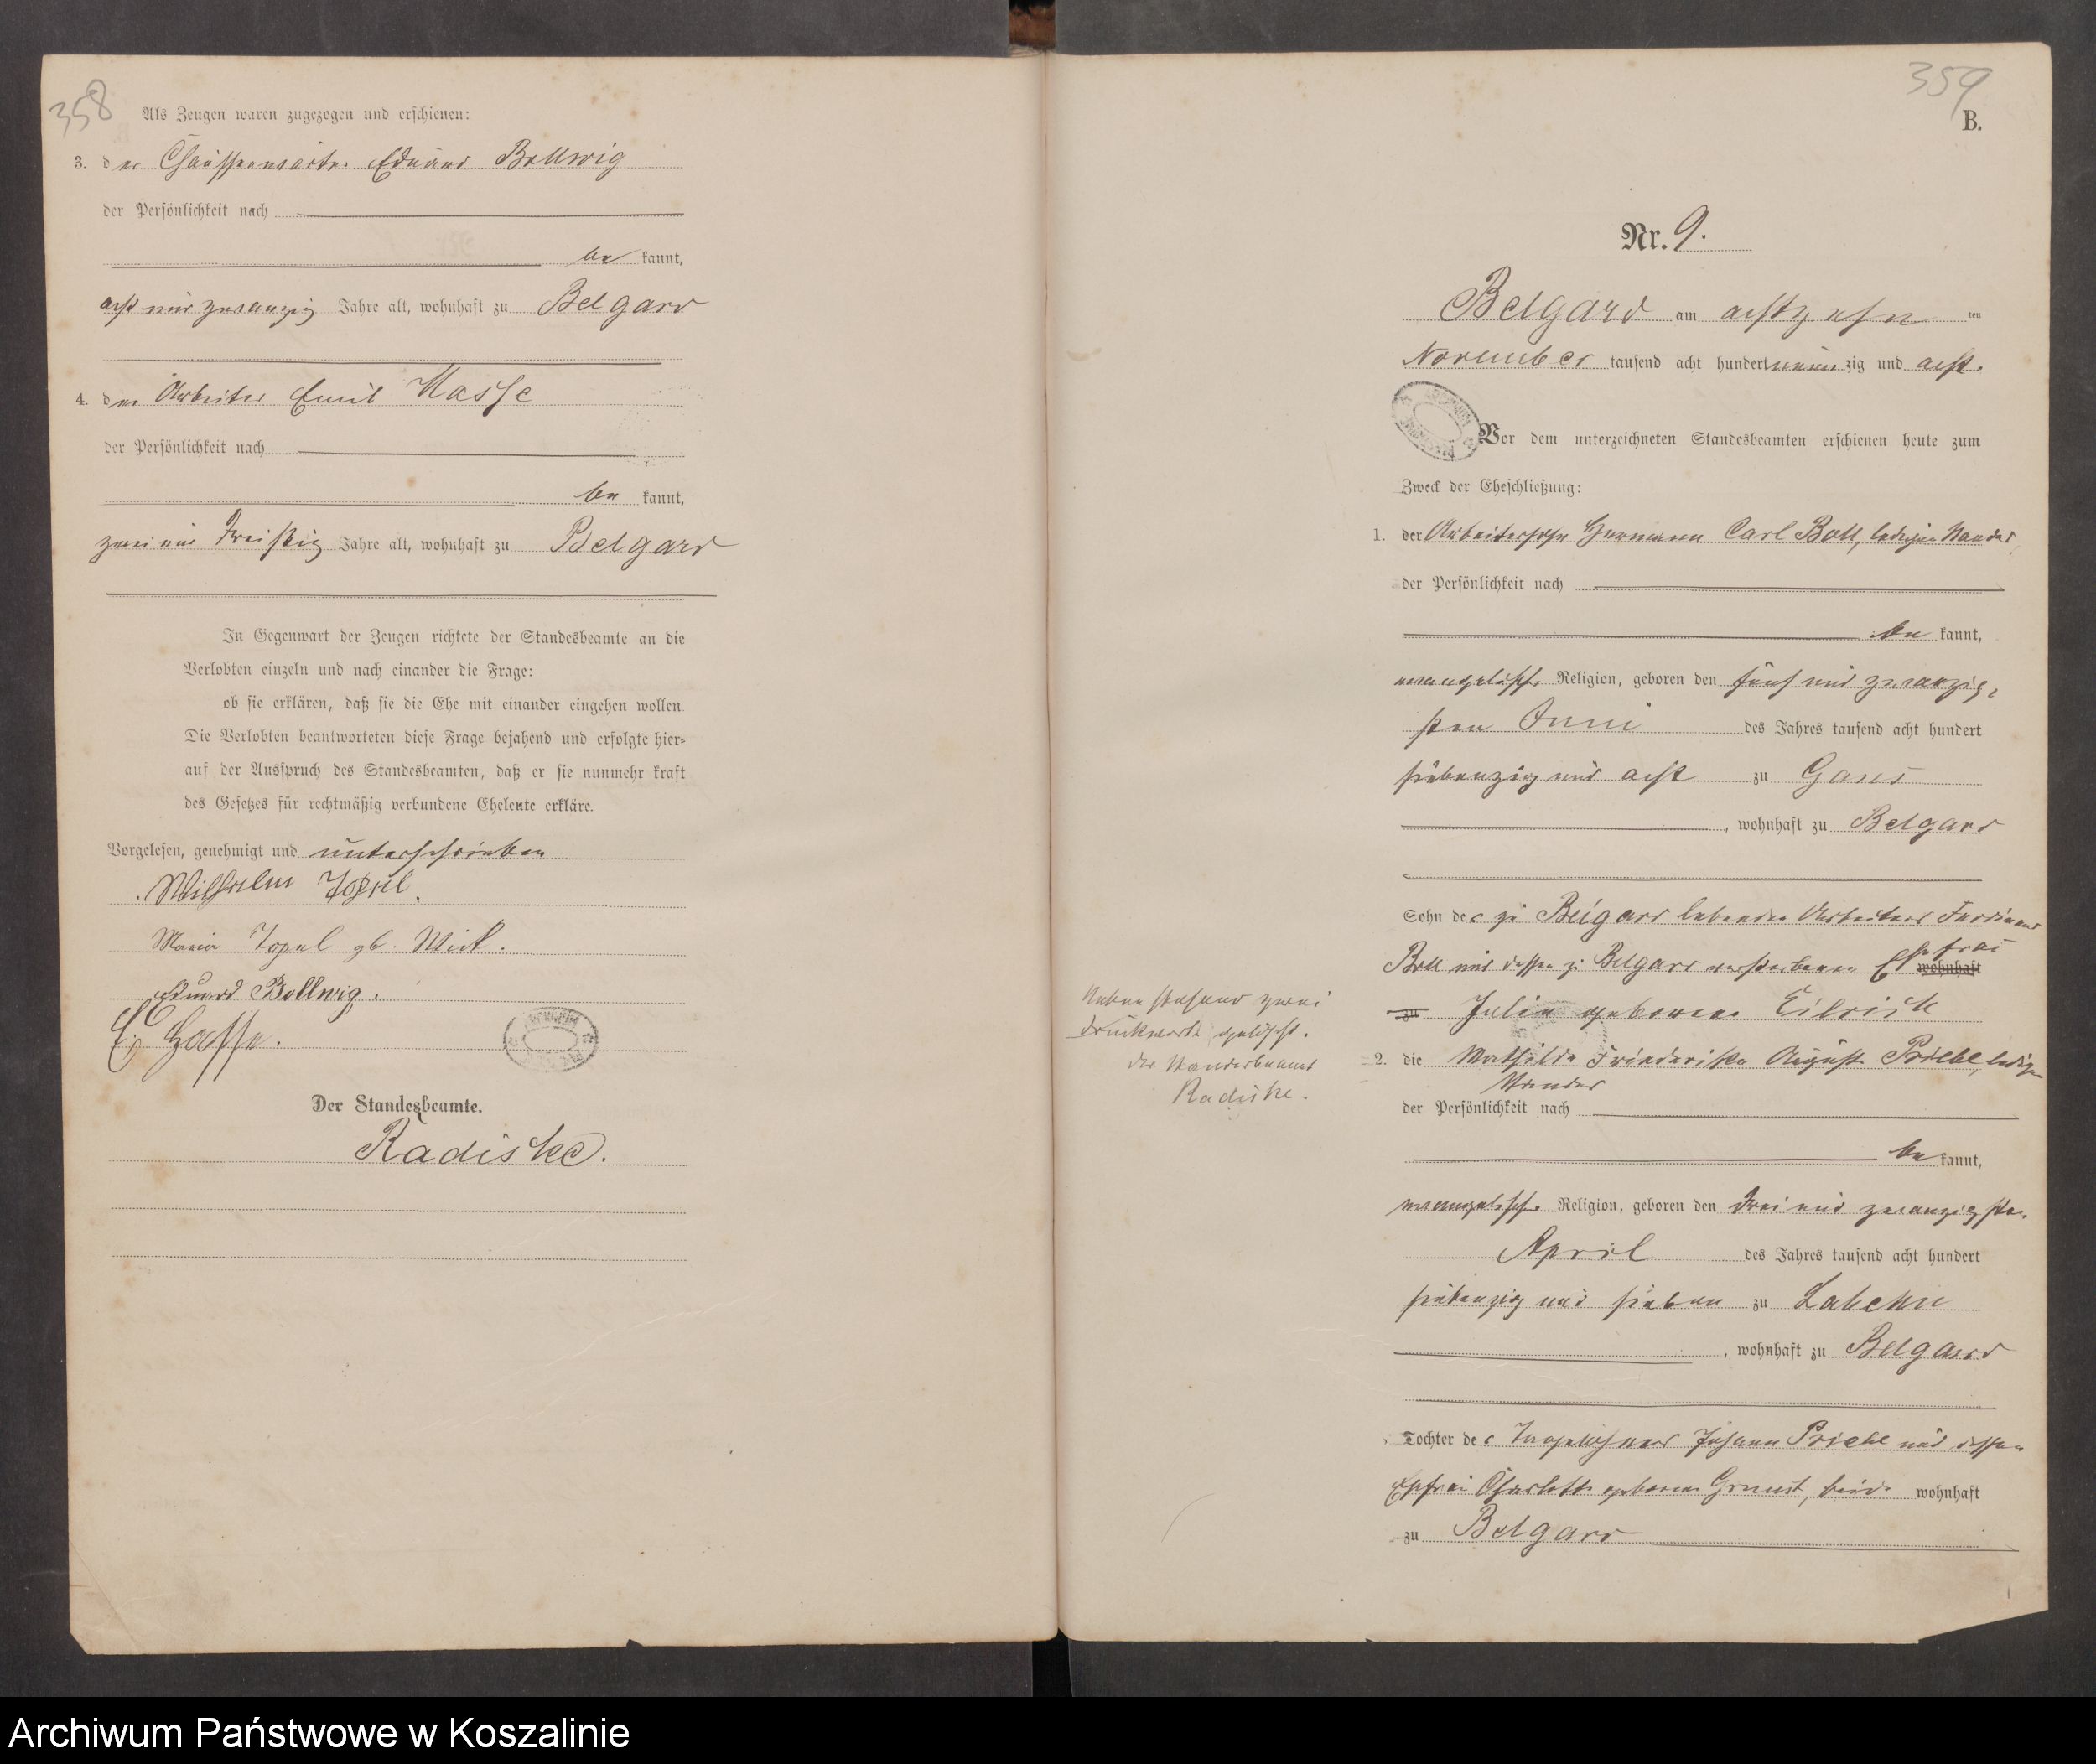 358
Als Zeugen waren zugezogen und erschienen:
3. der Chausseewärter Eduard Bollwig
der Persönlichkeit nach
be kannt,
acht und zwanzig Jahre alt, wohnhaft zu Belgard
4. der Arbeiter Emil Hasse
der Persönlichkeit nach
be kannt,
zwei und dreißig Jahre alt, wohnhaft zu Belgard
In Gegenwart der Zeugen richtete der Standesbeamte an die
Verlobten einzeln und nach einander die Frage:
ob sie erklären, daß sie die Ehe mit einander eingehen wollen.
Die Verlobten beantworteten diese Frage bejahend und erfolgte hier=
auf der Ausspruch des Standesbeamten, daß er sie nunmehr kraft
des Gesetzes für rechtmäßig verbundene Eheleute erkläre.
Vorgelesen, genehmigt und unterschrieben
Wilhelm
Maria Topel gb.
Eduard Bollwig.
E Hasse.
Der Standesbeamte.
Radiske.
359
B.
Nr. 9.
Belgard am achtzehn ten
November tausend acht hundert neun zig und acht.
Vor dem unterzeichneten Standesbeamten erschienen heute zum
Zweck der Eheschließung:
1. der Arbeitersohn Hermann Carl Boll, ledigen Standes,
der Persönlichkeit nach
be kannt,
evangelischer Religion, geboren den fünf und zwanzig=
sten Juni des Jahres tausend acht hundert
siebenzig und acht zu
, wohnhaft zu Belgard
Sohn des zu Belgard lebenden Arbeiters Ferdinand
Boll und dessen zu Belgard verstorbenen Ehefrau wohnhaft
zu Julie geborene
Neben stehend zwei
Druckworte gelöscht.
Der Standesbeamte
Radiske.
2. die Mathilde Friederike Auguste Priebe, ledigen
Standes
der Persönlichkeit nach
be kannt,
evangelischer Religion, geboren den drei und zwanzigsten
April des Jahres tausend acht hundert
siebenzig und sieben zu
, wohnhaft zu Belgard
Tochter des Tagelöhners Johann Priebe und dessen
Ehefrau Charlotte geborene beide wohnhaft
zu Belgard
Archiwum Państwowe w Koszalinie